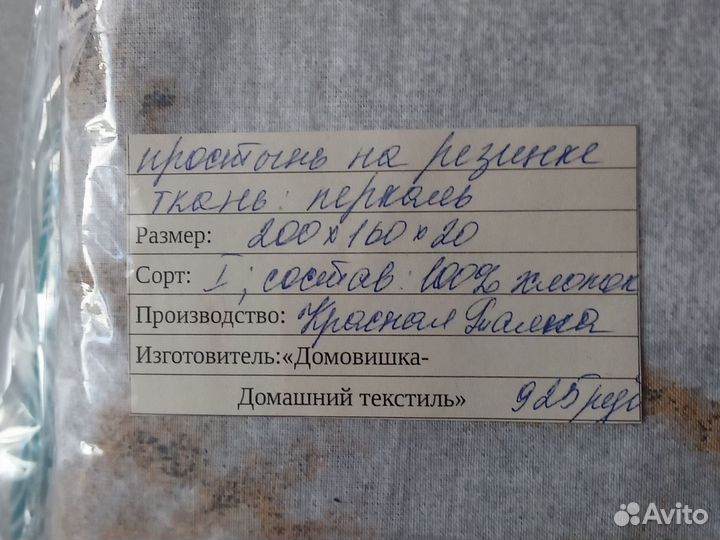 простынь на резинке
ткань: перкаль
Размер: 200 х 160 х 20
Сорт: I; состав: 100% хлопок
Производство: Красная Талка
Изготовитель:«Домовишка-
Домашний текстиль» 925 руб
Avito